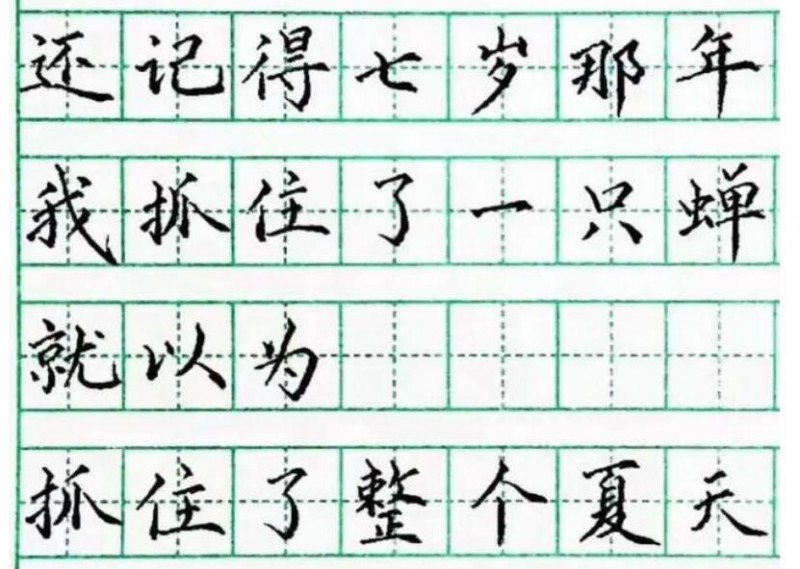 还记得七岁那年
我抓住了一只蝉
就以为
抓住了整个夏天